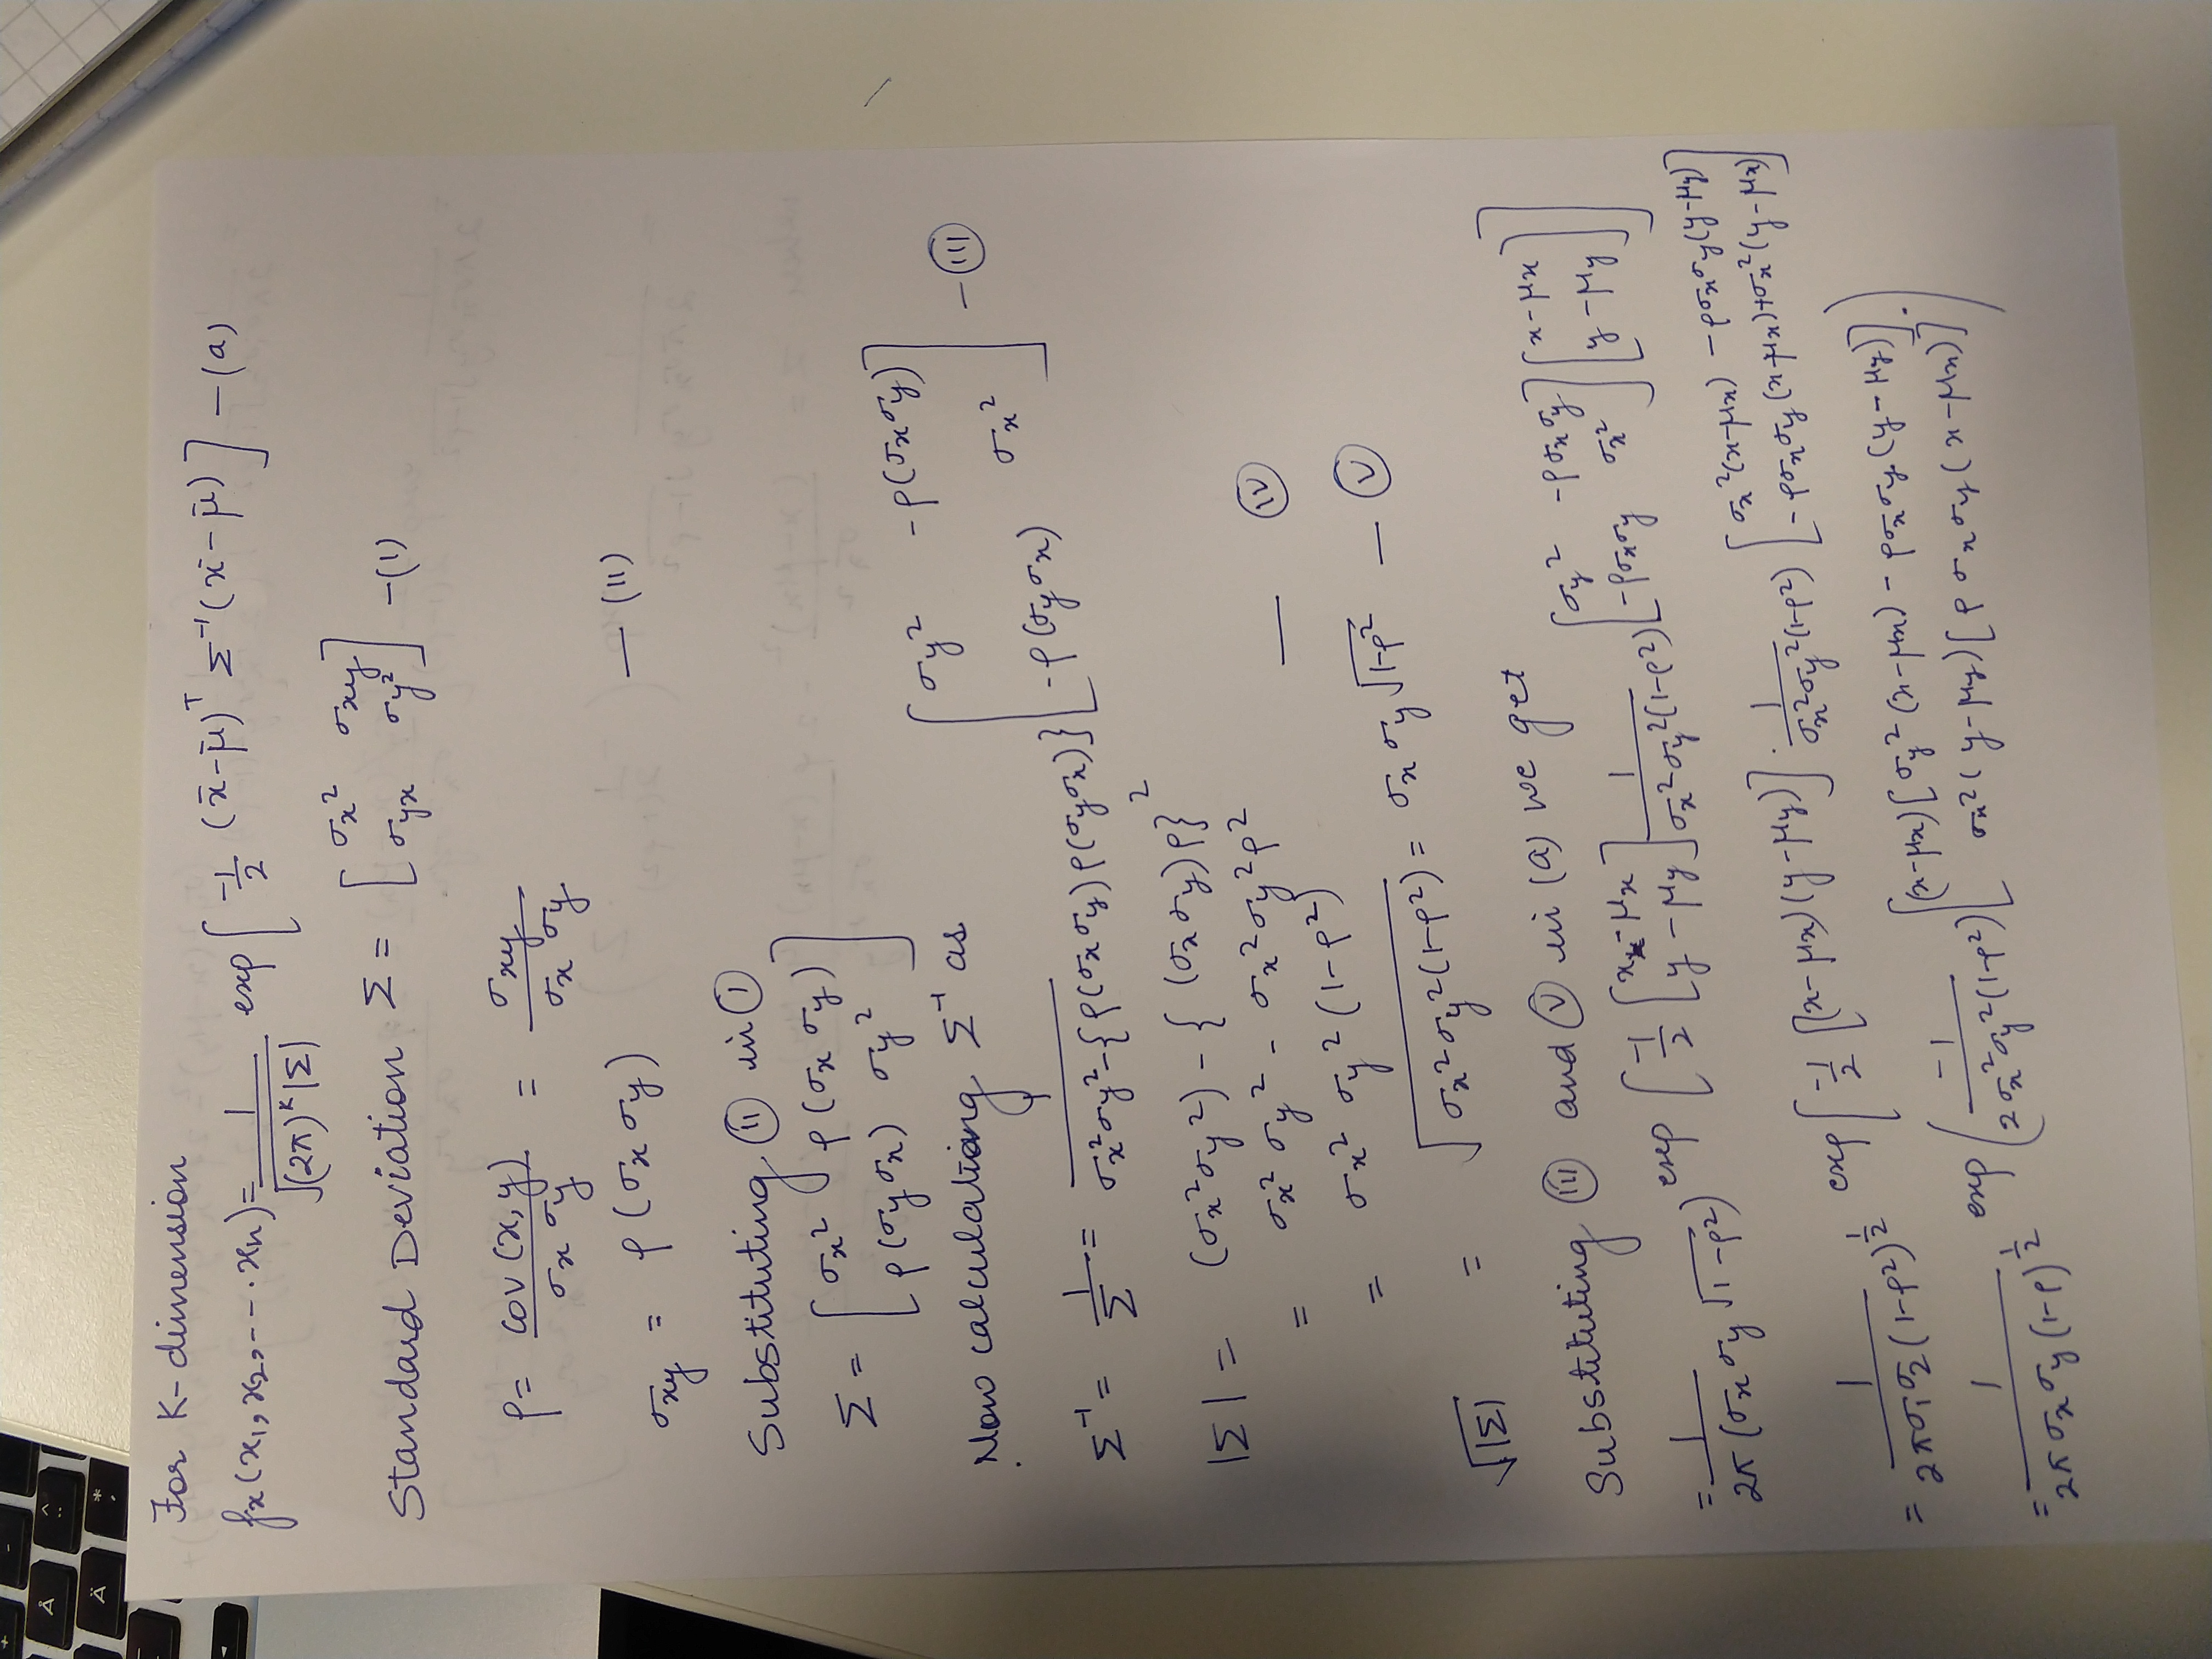 For K-dimension
fx(x₁, x₂, --- . xn) = 1/√((2π)^K |Σ|) exp[ -1/2 (x̄ - μ̄)^T Σ⁻¹ (x̄ - μ̄) ] — (a)
Standard Deviation Σ = [ σx² σxy ; σyx σy² ] — (1)
ρ = cov(x,y)/(σx σy) = σxy/(σx σy)
σxy = ρ(σx σy) — (11)
Substituting (11) in (1)
Σ = [ σx² ρ(σx σy) ; ρ(σy σx) σy² ]
Now calculating Σ⁻¹ as
Σ⁻¹ = 1/Σ = 1/(σx² σy² - {ρ(σx σy) ρ(σy σx)}) [ σy² -ρ(σx σy) ; -ρ(σy σx) σx² ] — (111)
|Σ| = (σx² σy²) - { (σx σy) ρ}²
= σx² σy² - σx² σy² ρ²
= σx² σy² (1-ρ²) — (IV)
√|Σ| = √(σx² σy² (1-ρ²)) = σx σy √(1-ρ²) — (V)
Substituting (111) and (V) in (a) we get
= 1/(2π (σx σy √(1-ρ²)) exp[ -1/2 [ x - μx ; y - μy ] 1/(σx² σy² (1-ρ²)) [ σy² -ρσx σy ; -ρσx σy σx² ] [ x - μx ; y - μy ] ]
= 1/(2πσ₁ σ₂ (1-ρ²)^½) exp[ -1/2 [(x-μx) (y-μy)] . 1/(σx² σy² (1-ρ²)) [ σx² (x-μx) - ρσx σy (y-μy) ; -ρσx σy (x-μx) + σx² (y-μx) ]
= 1/(2π σx σy (1-ρ)^½) exp( -1/(2σx² σy² (1-ρ²)) [ (x-μx) [σy² (x-μx) - ρσx σy (y-μy)] . ; σx² (y-μy) [ρ σx σy (x-μx)] )